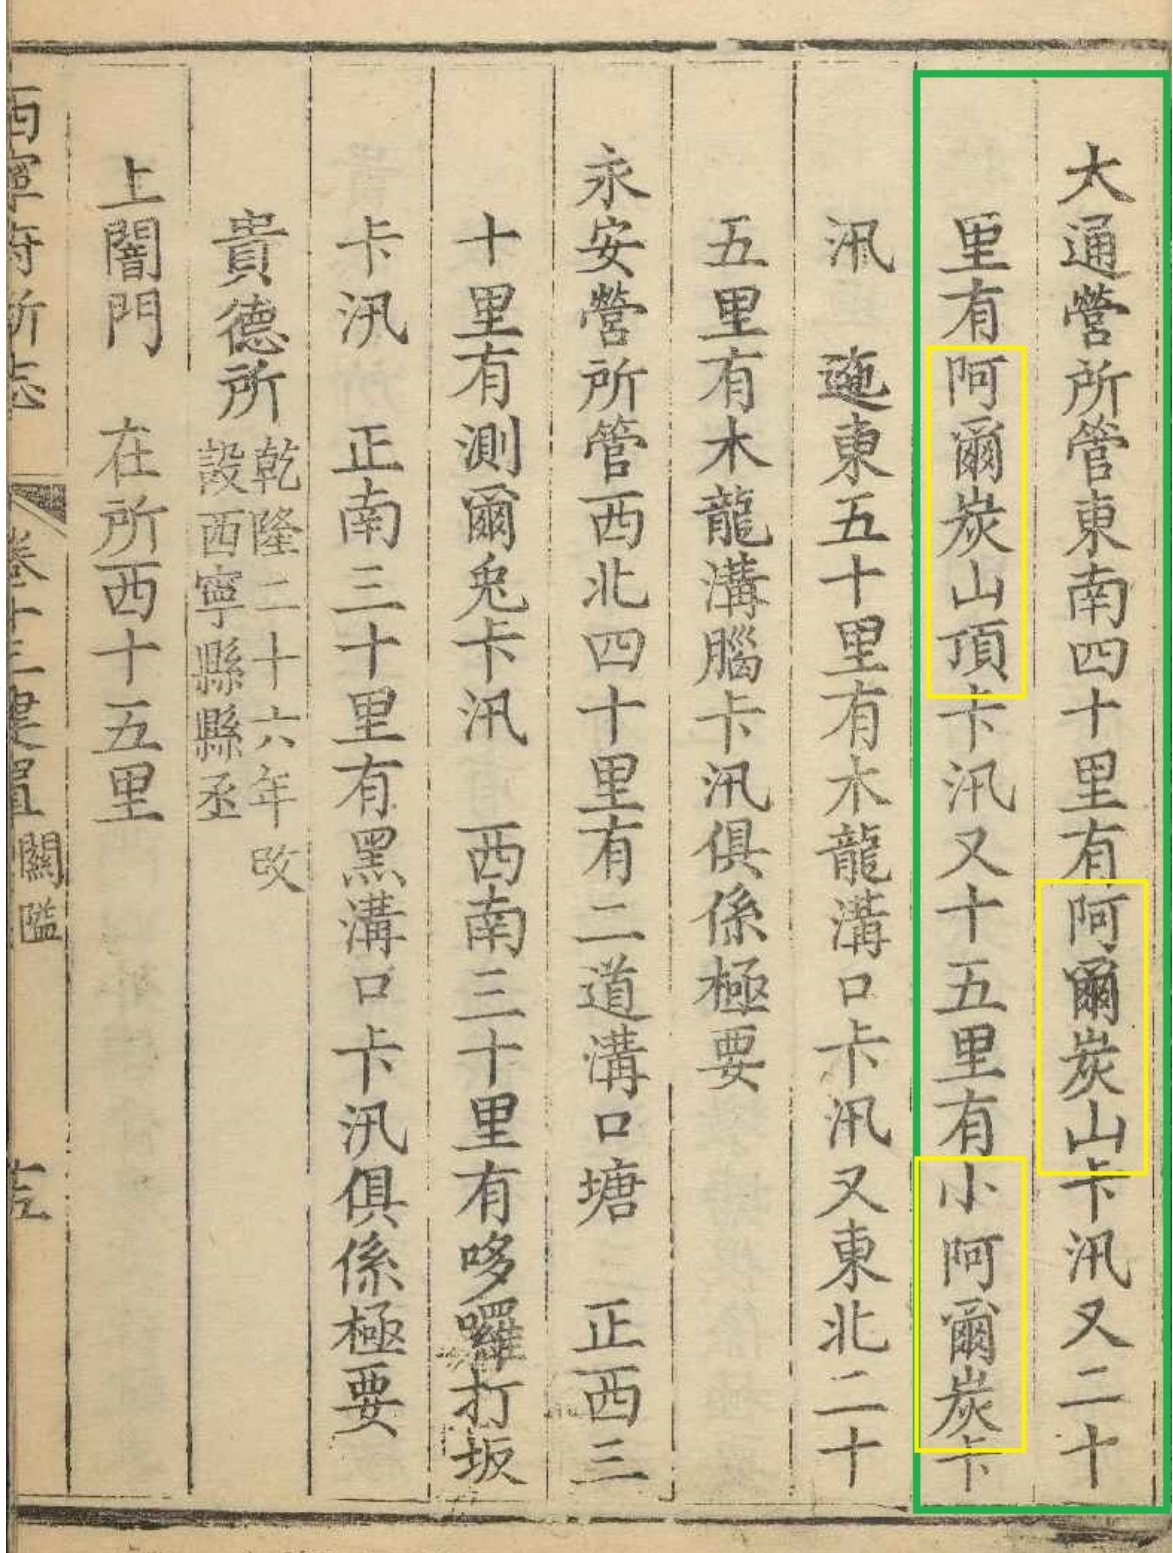 大通營所管東南四十里有阿爾炭山卡汛又二十
里有阿爾炭山頂卡汛又十五里有小阿爾炭卡
汛 迤東五十里有木龍溝口卡汛又東北二十
五里有木龍溝腦卡汛俱係極要
永安營所管西北四十里有二道溝口塘 正西三
十里有測爾兎卡汛 西南三十里有哆囉打坂
卡汛 正南三十里有黑溝口卡汛俱係極要
貴德所
乾隆二十六年改
設西寧縣縣丞
上闇門 在所西十五里
西寧府新志 卷十三建置 關隘